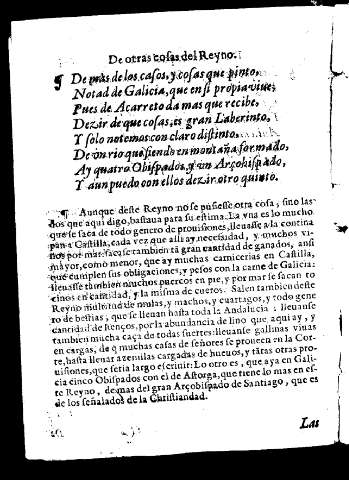 De otras cosas del Reyno.
¶ De mas de los casos, y cosas que pinto,
Notad de Galicia, que en si propia viue,
Pues de Acarreto da mas que recibe,
Dezir de que cosas, es gran Laberinto,
Y solo notemos con claro distinto,
De vn rio que siendo en montaña formado,
Ay quatro Obispados, y vn Arçobispado,
Y aun puedo con ellos dezir otro quinto.
¶ Aunque deste Reyno no se pusiesse otra cosa, sino las
dos que aqui digo, bastaua para su estima. La vna es lo mucho
que se saca de todo genero de prouisiones, lleuasse a la contina
pan a Castilla, cada vez que alli ay necessidad, y muchos vi-
nos por mar: sacase tambien tã gran cantidad de ganados, ansi
mayor, como menor, que ay muchas carnicerias en Castilla,
que cumplen sus obligaciones, y pesos con la carne de Galicia:
lleuasse tambien muchos puercos en pie, y por mar se sacan to
cinos en cantidad, y la misma de cueros. Salen tambien deste
Reyno multitud de mulas, y machos, y quartagos, y todo gene
ro de bestias, que se lleuan hasta toda la Andalucia: lleuasse
cantidad de lienços, por la abundancia de lino que aqui ay, y
tambien mucha caça de todas suertes: lleuanse gallinas viuas
en cargas, de q̃ muchas casas de señores se proueen en la Cor-
te, hasta llenar azemilas cargadas de hueuos, y tãtas otras pro-
uisiones, que seria largo escriuir: Lo otro es, que aya en Gali-
cia cinco Obispados con el de Astorga, que tiene lo mas en es-
te Reyno, demas del gran Arçobispado de Santiago, que es
de los señalados de la Christiandad.
Las